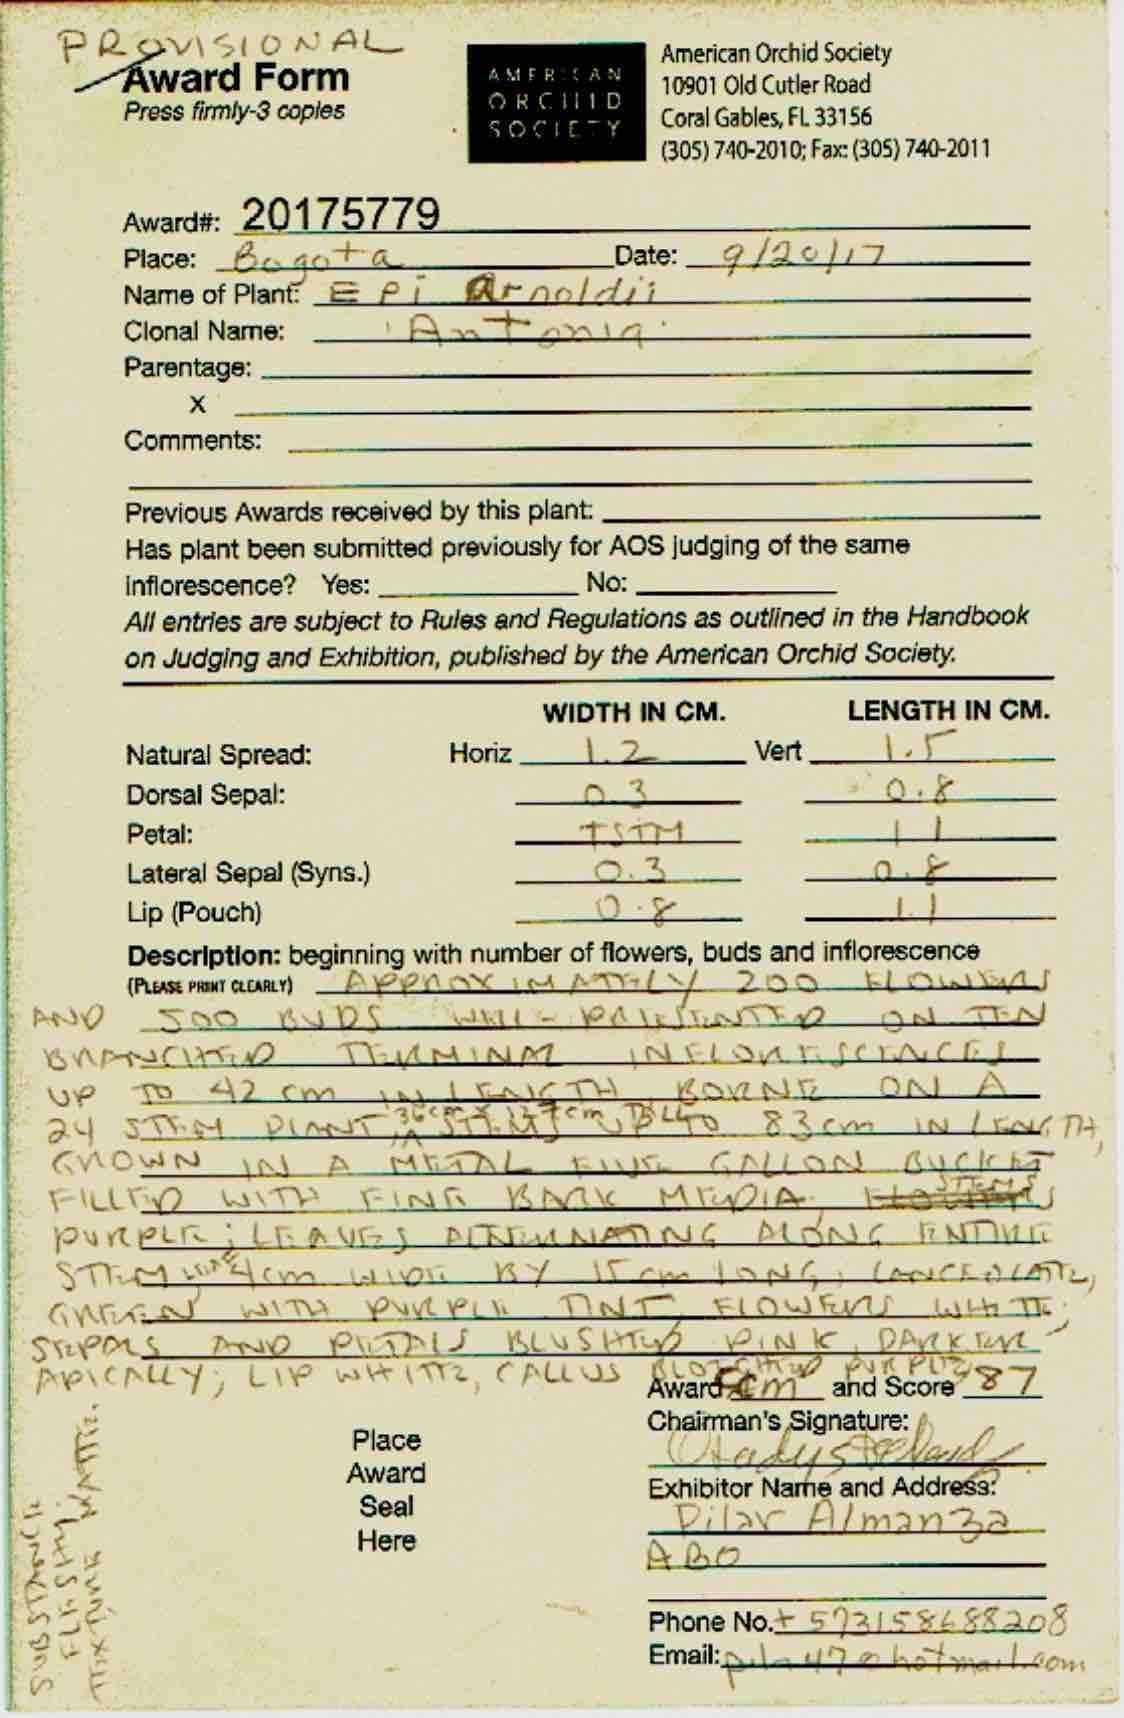 PROVISIONAL
Award Form
Press firmly-3 copies
AMERICAN
ORCHID
SOCIETY
American Orchid Society
10901 Old Cutler Road
Coral Gables, FL 33156
(305) 740-2010; Fax: (305) 740-2011
Award#: 20175779
Place: Bogota Date: 9/20/17
Name of Plant: Epi Arnoldii
Clonal Name: 'Antonia'
Parentage:
X
Comments:
Previous Awards received by this plant:
Has plant been submitted previously for AOS judging of the same
inflorescence? Yes: No:
All entries are subject to Rules and Regulations as outlined in the Handbook
on Judging and Exhibition, published by the American Orchid Society.
WIDTH IN CM. LENGTH IN CM.
Natural Spread: Horiz 1.2 Vert 1.5
Dorsal Sepal: 0.3 0.8
Petal: TSTM 1.1
Lateral Sepal (Syns.) 0.3 0.8
Lip (Pouch) 0.8 1.1
Description: beginning with number of flowers, buds and inflorescence
(PLEASE PRINT CLEARLY) APPROXIMATELY 200 FLOWERS
AND 500 BUDS WELL-PRESENTED ON TEN
BRANCHED TERMINAL INFLORESCENCES
UP TO 42 cm IN LENGTH BORNE ON A
36cm x 127cm TALL
24 STEM PLANT, STEMS UP TO 83cm IN LENGTH,
GROWN IN A METAL FIVE GALLON BUCKET
FILLED WITH FINE BARK MEDIA; STEMS
PURPLE; LEAVES ALTERNATING ALONG ENTIRE
STEM 4cm WIDE BY 15cm LONG, LANCEOLATE,
GREEN WITH PURPLE TINT FLOWERS WHITE;
SEPALS AND PETALS BLUSHED PINK, DARKER
APICALLY; LIP WHITE, CALLUS BLOTCHED PURPLE,
Award CCM and Score 87
Chairman's Signature:
Place
Award
Seal
Here
Exhibitor Name and Address:
Pilar Almanza
ABO
Phone No. + 573158688208
Email: pila47@hotmail.com
SUBSTANCE
FIRM
TEXTURE MATTE.